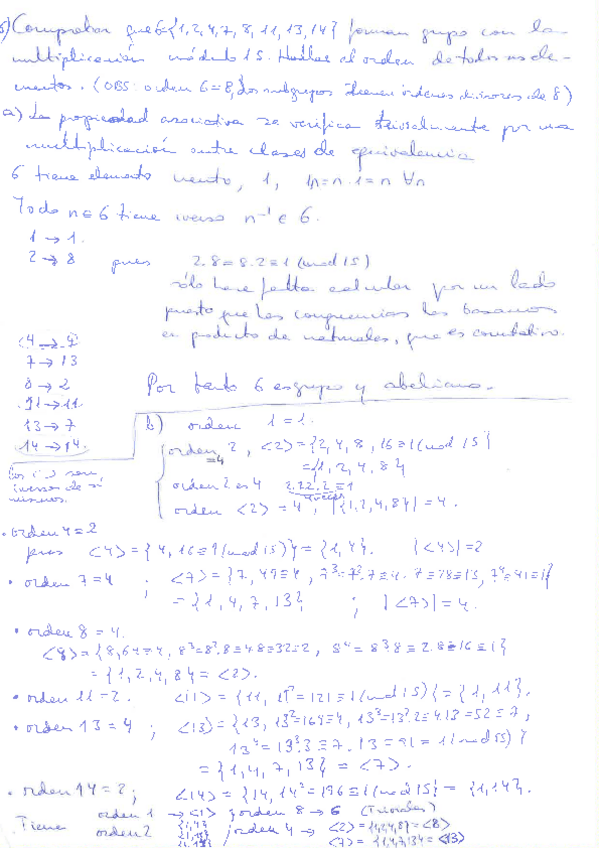 Comprobar que G{1,2,4,7,8,11,13,14} forman grupo con la
multiplicación módulo 15. Hallar el orden de todos sus ele-
mentos. (OBS: orden G=8, los subgrupos tienen órdenes divisores de 8)
a) La propiedad asociativa se verifica trivialmente por una
multiplicación entre clases de equivalencia
G tiene elemento neutro, 1, 1n=n·1=n ∀n
Todo n∈G tiene inverso n⁻¹∈G.
1→1.
2→8 pues 2·8=8·2≡1 (mod 15)
sólo hace falta calcular por un lado
puesto que las congruencias las basamos
en producto de naturales, que es conmutativo.
4→4
7→13
8→2
11→11
13→7
14→14.
Por tanto G es grupo y abeliano.
Los son
inversos de sí
mismos.
b) orden 1=1.
orden 2, <2>={2,4,8,16≡1(mod 15)}
=4
={1,2,4,8}
orden 2 es 4 2·2·2·2≡1
4 veces
orden <2>=4, |{1,2,4,8}|=4.
• orden 4=2
pues <4>={4,16≡1(mod 15)}={1,4}. |<4>|=2
• orden 7=4 ; <7>={7, 49≡4, 7³=7²·7≡4·7=28≡13, 7⁴≡91≡1}
={1,4,7,13} ; |<7>|=4.
• orden 8=4.
<8>={8,64≡4, 8³=8²·8≡4·8≡32≡2, 8⁴=8³·8≡2·8≡16≡1}
={1,2,4,8}=<2>.
• orden 11=2. <11>={11, 11²=121≡1(mod 15)}={1,11}.
• orden 13=4 ; <13>={13, 13²=169≡4, 13³=13²·13≡4·13=52≡7,
13⁴=13³·13≡7·13=91≡1(mod 15)}
={1,4,7,13}=<7>.
• orden 14=2; <14>={14, 14²=196≡1(mod 15)}={1,14}.
Tiene orden 1→<1> y orden 8→G (Triviales)
orden 2 {1,4} {1,11} {1,14} y orden 4→ <2>={1,2,4,8}=<8>
<7>={1,4,7,13}=<13>